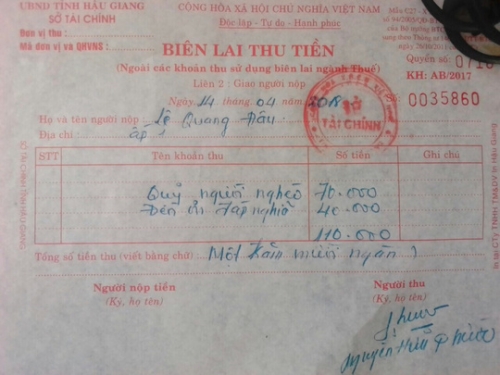 UBND TỈNH HẬU GIANG
SỞ TÀI CHÍNH
Đơn vị thu:
Mã đơn vị và QHVNS:
CỘNG HÒA XÃ HỘI CHỦ NGHĨA VIỆT NAM
Độc lập - Tự do - Hạnh phúc
BIÊN LAI THU TIỀN
(Ngoài các khoản thu sử dụng biên lai ngành Thuế)
Liên 2: Giao người nộp
Ngày 14 tháng 04 năm 2018
Quyển số:
KH: AB/2017
0035860
SỞ
TÀI CHÍNH
Họ và tên người nộp Lê Quang Đấu
Địa chỉ ấp 1
STT Tên khoản thu Số tiền Ghi chú
Quỹ người nghèo 70.000
Đền ơn đáp nghĩa 40.000
110.000
Tổng số tiền thu (viết bằng chữ) Một trăm mười ngàn
Người nộp tiền Người thu
(Ký, họ tên) (Ký, họ tên)